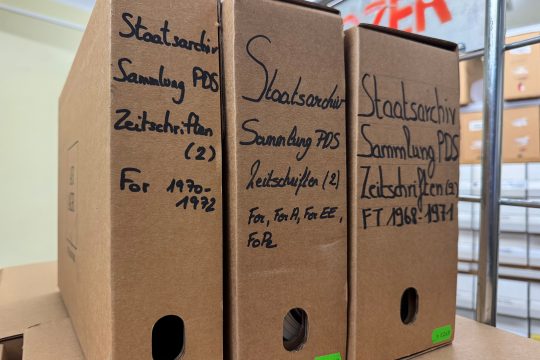 Staatsarchiv
Sammlung PDS
Zeitschriften
(2)
For 1970-
1972
Staatsarchiv
Sammlung PDS
Zeitschriften (2)
For, For A, For EE,
FoPz
Staatsarchiv
Sammlung PDS
Zeitschriften (2)
FT 1968-1971
ZER